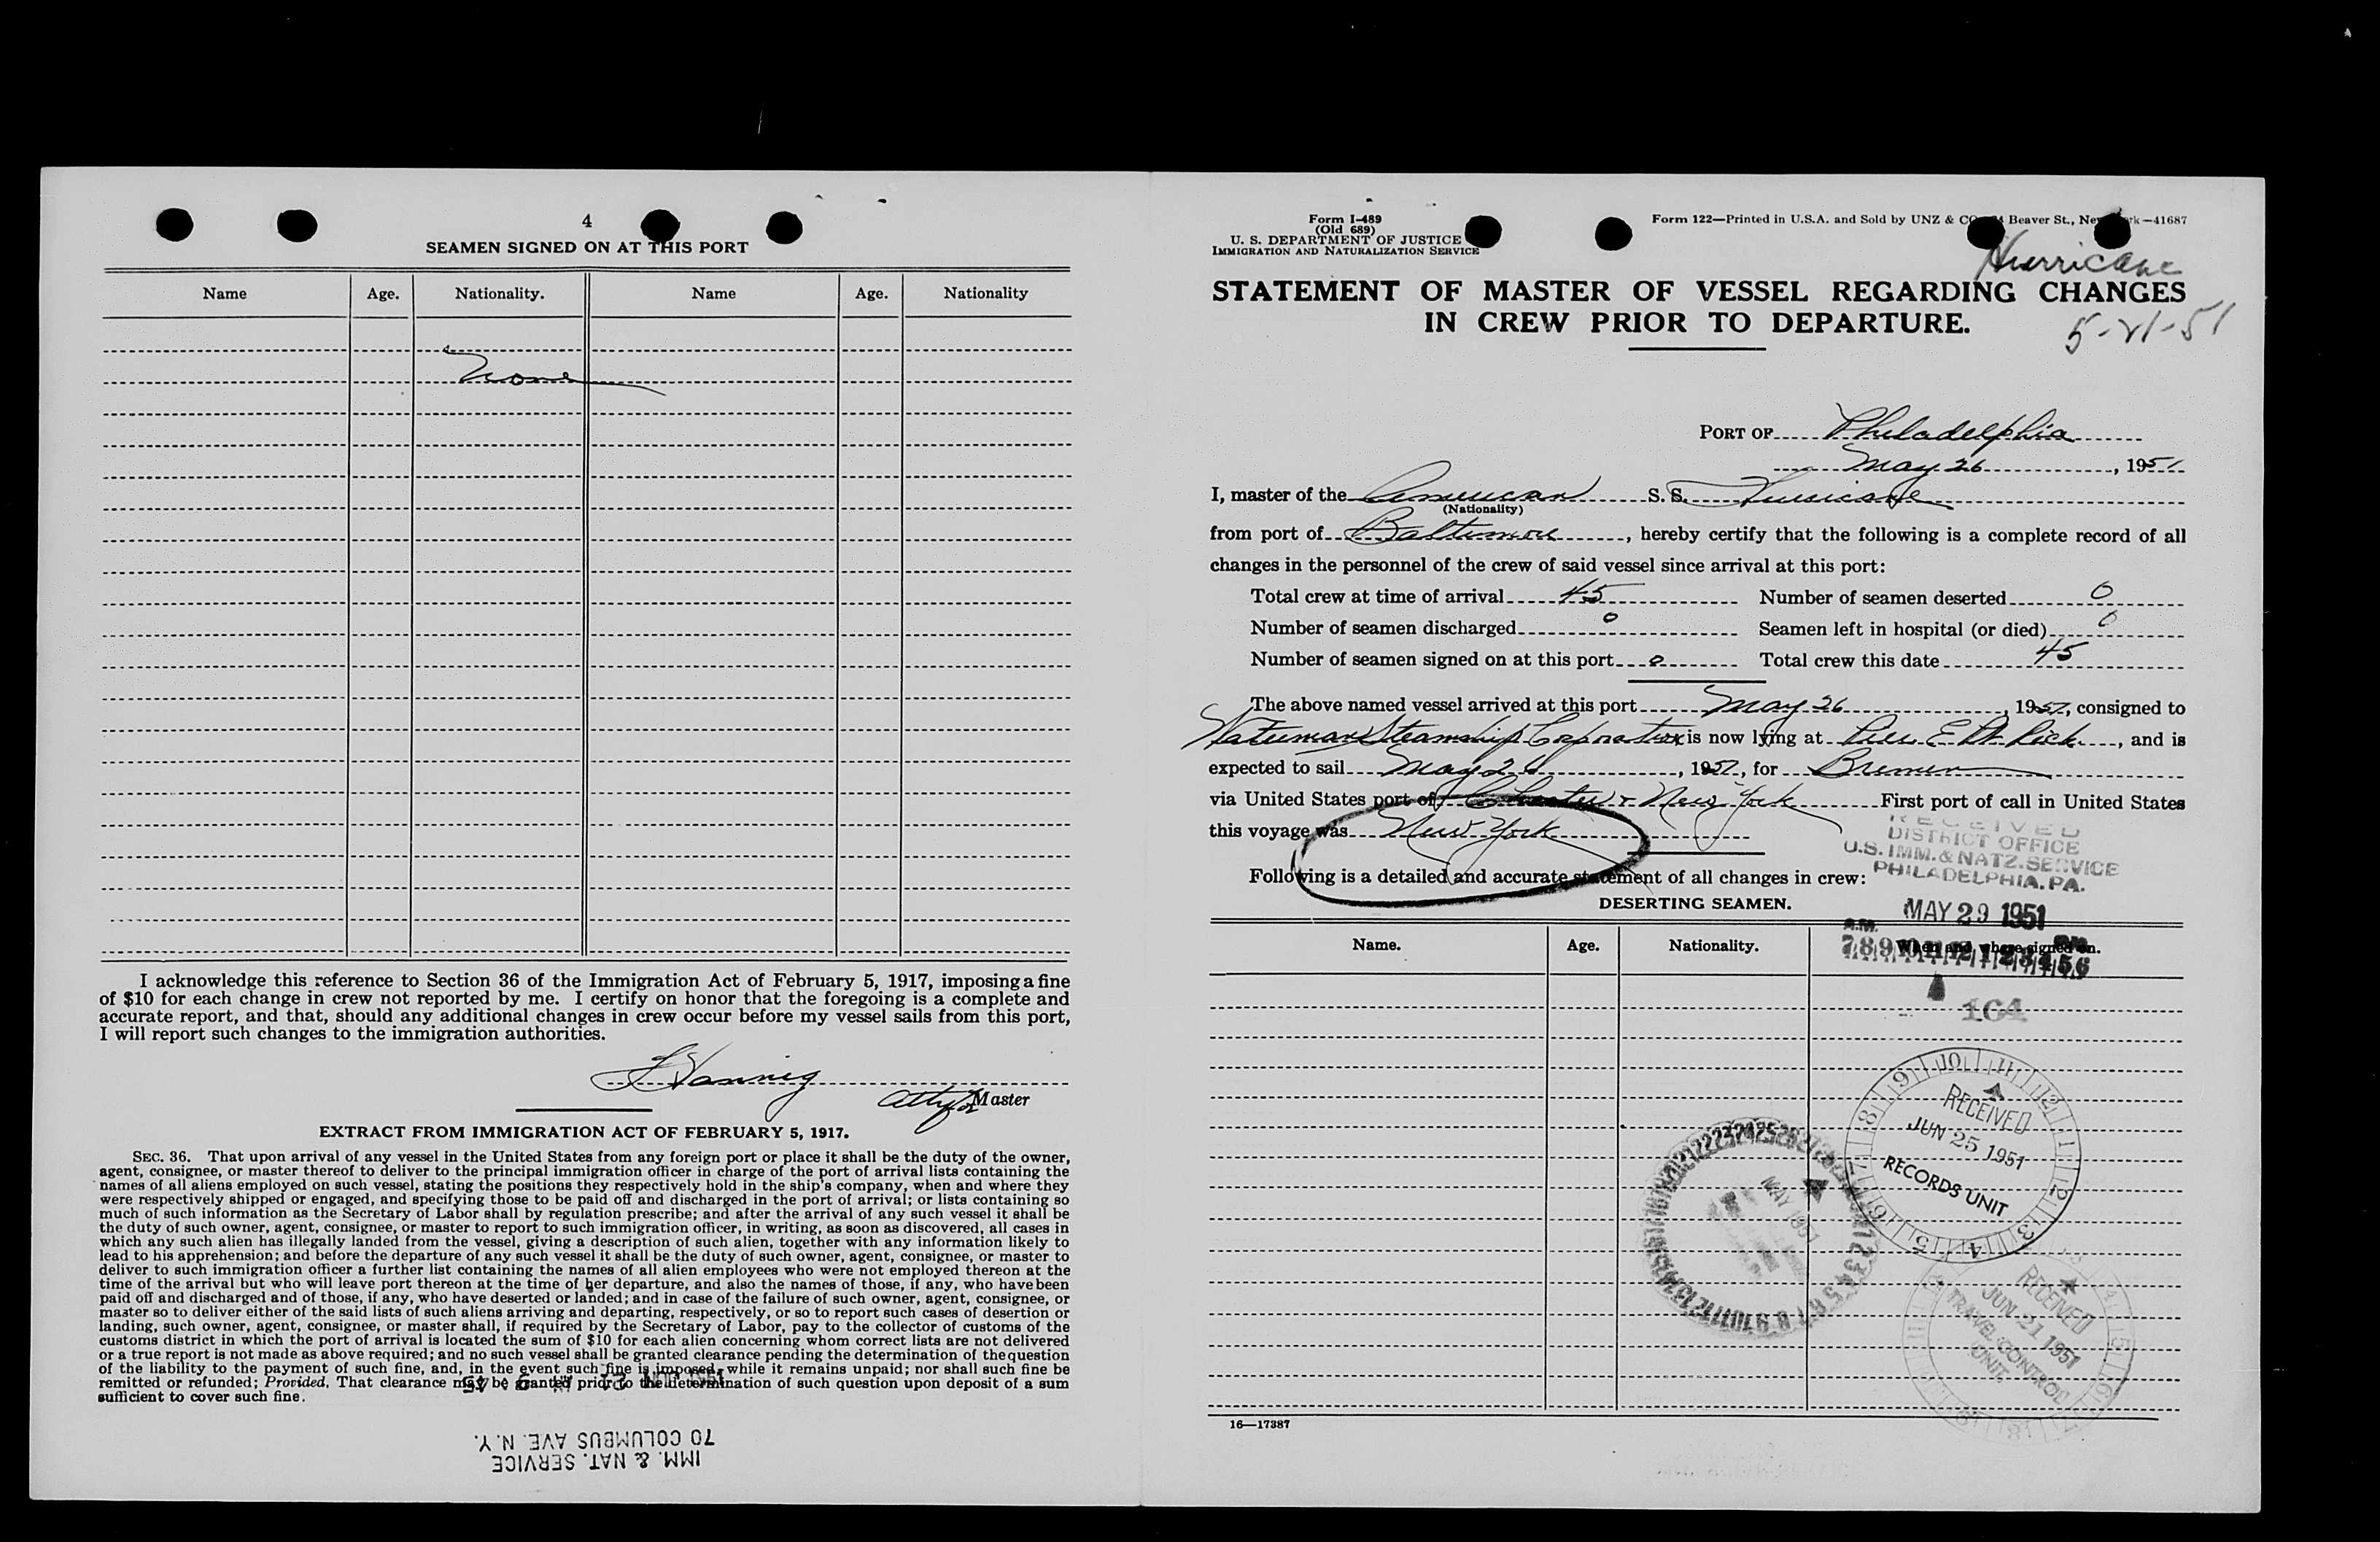 4
SEAMEN SIGNED ON AT THIS PORT
Name Age. Nationality. Name Age. Nationality
None
I acknowledge this reference to Section 36 of the Immigration Act of February 5, 1917, imposing a fine
of $10 for each change in crew not reported by me. I certify on honor that the foregoing is a complete and
accurate report, and that, should any additional changes in crew occur before my vessel sails from this port,
I will report such changes to the immigration authorities.
Master
EXTRACT FROM IMMIGRATION ACT OF FEBRUARY 5, 1917.
SEC. 36. That upon arrival of any vessel in the United States from any foreign port or place it shall be the duty of the owner,
agent, consignee, or master thereof to deliver to the principal immigration officer in charge of the port of arrival lists containing the
names of all aliens employed on such vessel, stating the positions they respectively hold in the ship's company, when and where they
were respectively shipped or engaged, and specifying those to be paid off and discharged in the port of arrival; or lists containing so
much of such information as the Secretary of Labor shall by regulation prescribe; and after the arrival of any such vessel it shall be
the duty of such owner, agent, consignee, or master to report to such immigration officer, in writing, as soon as discovered, all cases in
which any such alien has illegally landed from the vessel, giving a description of such alien, together with any information likely to
lead to his apprehension; and before the departure of any such vessel it shall be the duty of such owner, agent, consignee, or master to
deliver to such immigration officer a further list containing the names of all alien employees who were not employed thereon at the
time of the arrival but who will leave port thereon at the time of her departure, and also the names of those, if any, who have been
paid off and discharged and of those, if any, who have deserted or landed; and in case of the failure of such owner, agent, consignee, or
master so to deliver either of the said lists of such aliens arriving and departing, respectively, or so to report such cases of desertion or
landing, such owner, agent, consignee, or master shall, if required by the Secretary of Labor, pay to the collector of customs of the
customs district in which the port of arrival is located the sum of $10 for each alien concerning whom correct lists are not delivered
or a true report is not made as above required; and no such vessel shall be granted clearance pending the determination of the question
of the liability to the payment of such fine, and, in the event such fine is imposed, while it remains unpaid; nor shall such fine be
remitted or refunded; Provided, That clearance may be granted prior to the determination of such question upon deposit of a sum
sufficient to cover such fine.
IMM. & NAT. SERVICE
70 COLUMBUS AVE. N.Y.
Form I-489
(Old 689)
U. S. DEPARTMENT OF JUSTICE
IMMIGRATION AND NATURALIZATION SERVICE
Form 122—Printed in U.S.A. and Sold by UNZ & CO. Beaver St., New York—41687
Hurricane
STATEMENT OF MASTER OF VESSEL REGARDING CHANGES
IN CREW PRIOR TO DEPARTURE.
5-21-51
PORT OF Philadelphia
May 26, 1951
I, master of the American S. S. Hurricane
(Nationality)
from port of Baltimore, hereby certify that the following is a complete record of all
changes in the personnel of the crew of said vessel since arrival at this port:
Total crew at time of arrival 45 Number of seamen deserted 0
Number of seamen discharged 0 Seamen left in hospital (or died) 0
Number of seamen signed on at this port 0 Total crew this date 45
The above named vessel arrived at this port May 26, 1951, consigned to
Waterman Steamship Corporation is now lying at Pier E Pt. Rich, and is
expected to sail May 26, 1951, for Bremen
via United States port of & New York First port of call in United States
this voyage was New York
RECEIVED
DISTRICT OFFICE
U.S. IMM. & NATZ. SERVICE
PHILADELPHIA, PA.
Following is a detailed and accurate statement of all changes in crew:
DESERTING SEAMEN.
MAY 29 1951
A.M. PM
7 8 9 10 11 12 1 2 3 4 5 6
Name. Age. Nationality. When and where signed on.
164
RECEIVED
JUN 25 1951
RECORDS UNIT
MAY 1951
RECEIVED
JUN 21 1951
TRAVEL CONTROL
UNIT
16—17387